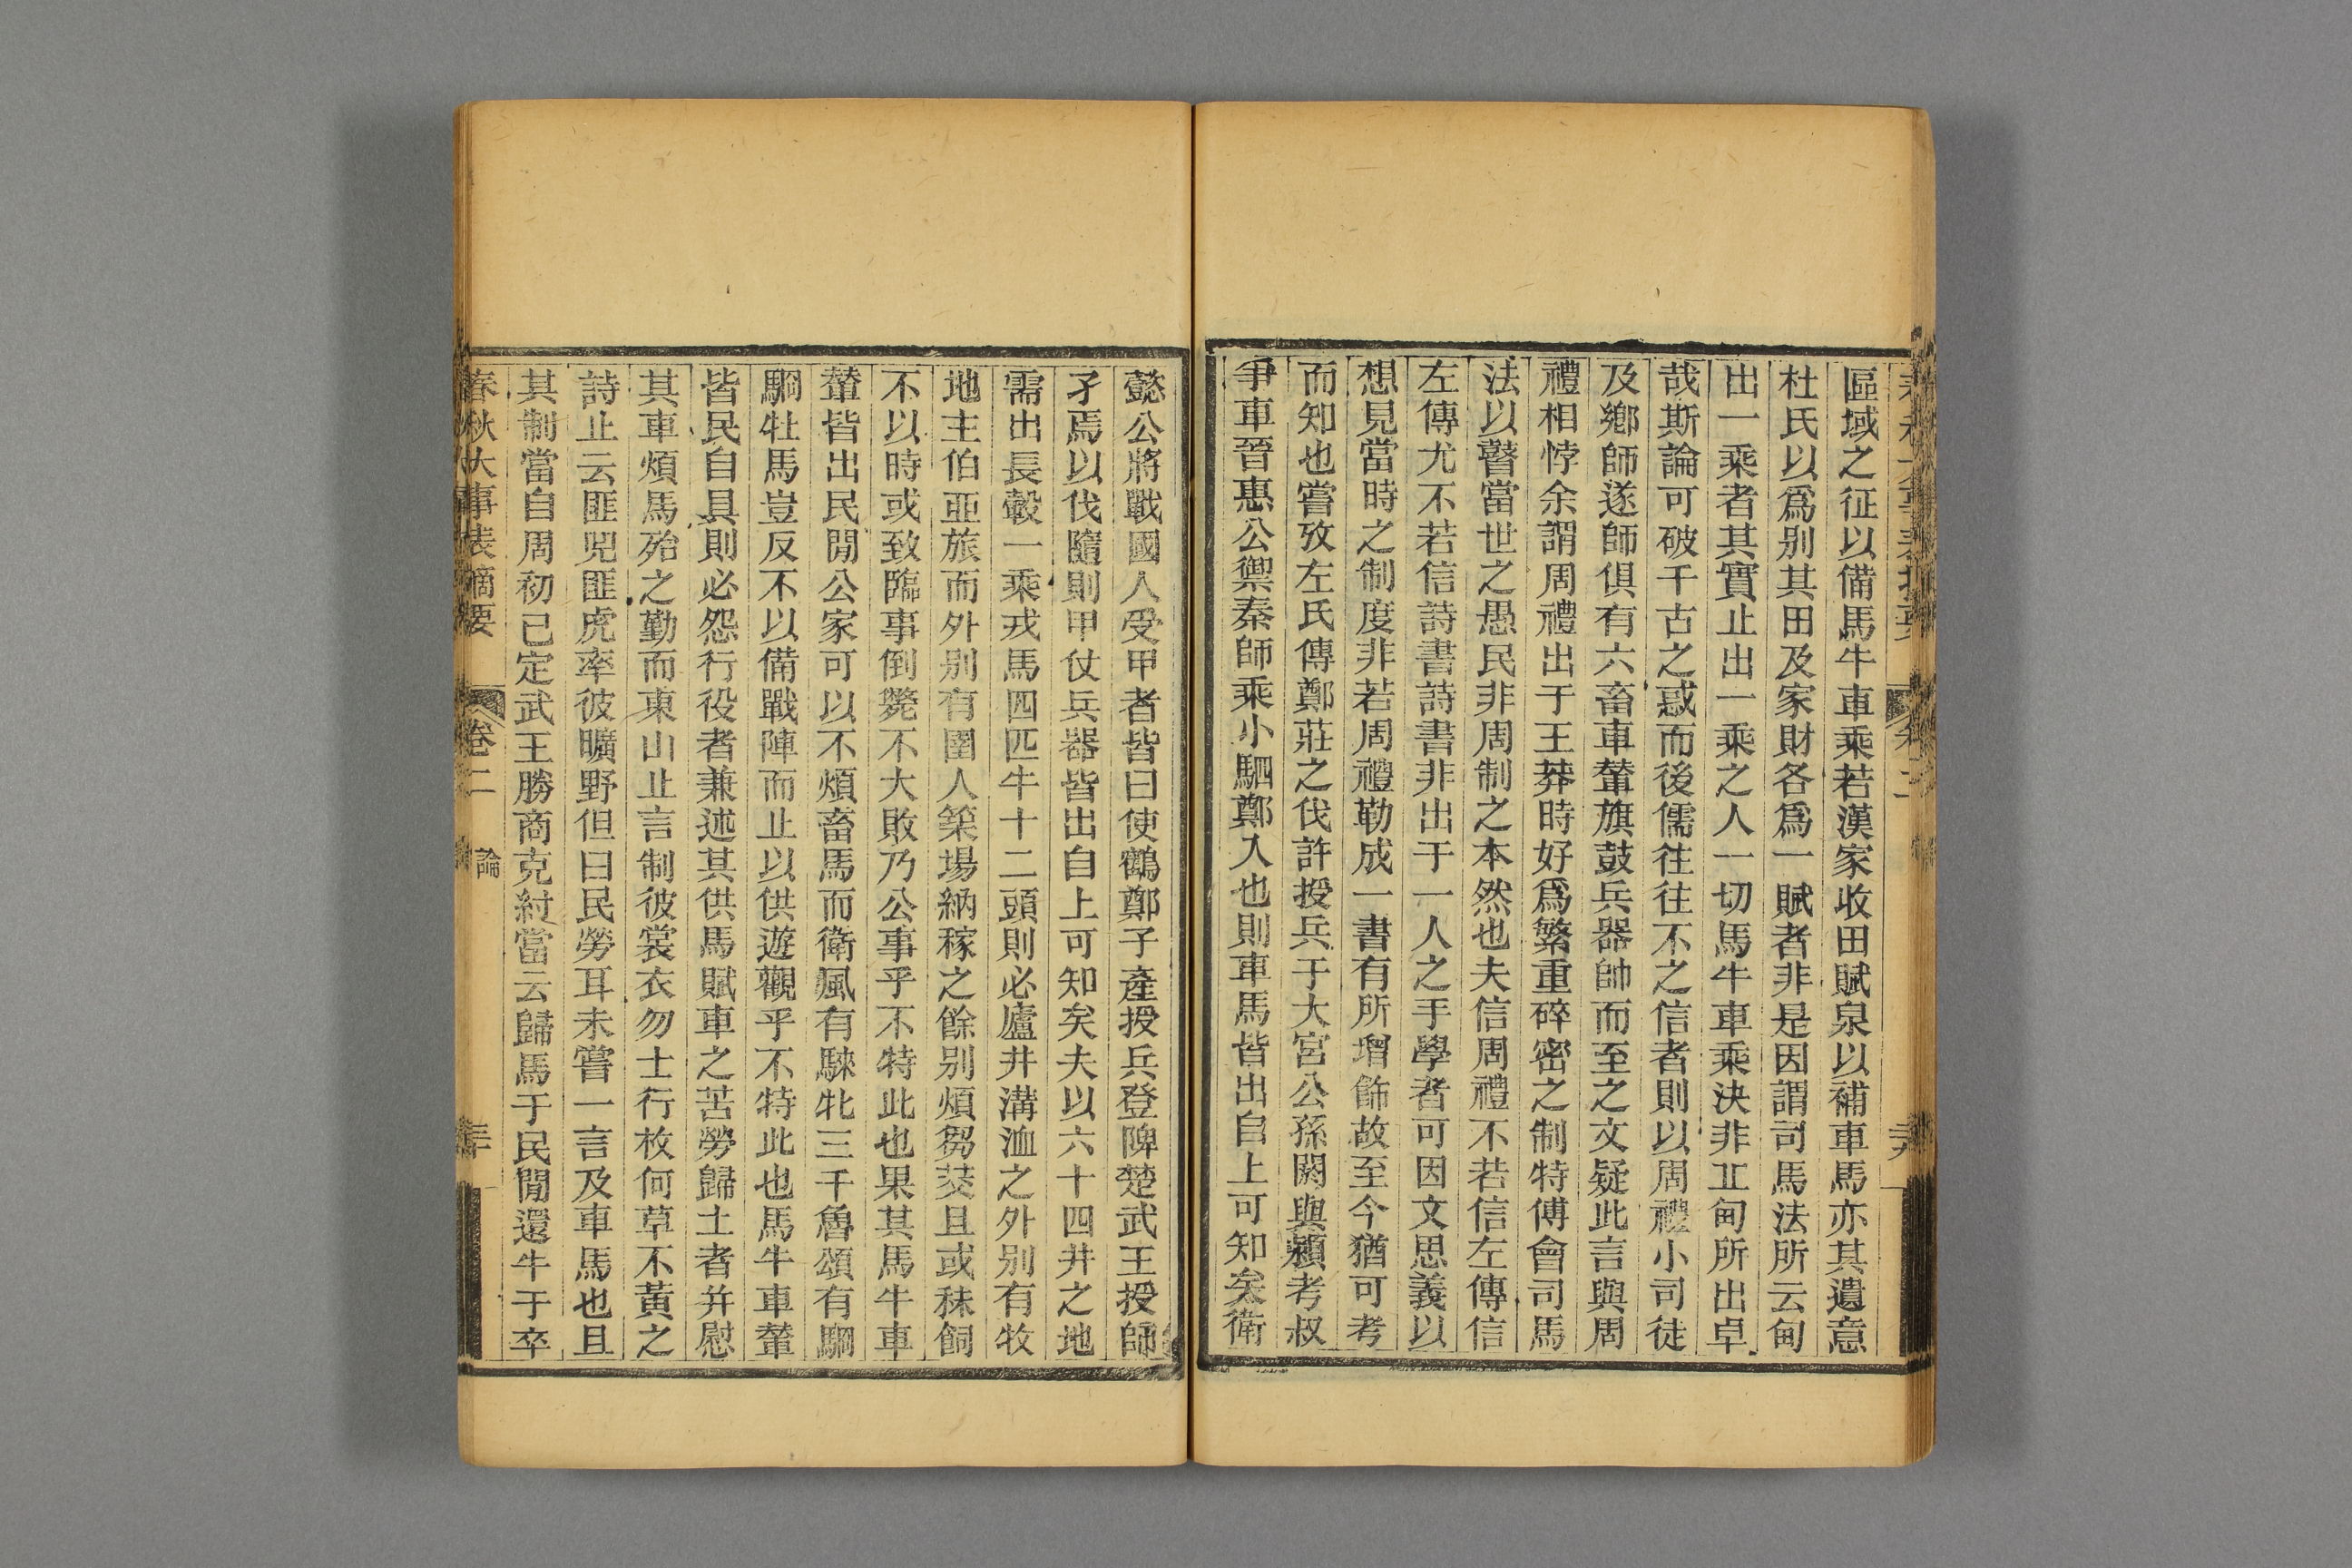 區域之征以備馬牛車乘若漢家收田賦泉以補車馬亦其遺意
杜氏以爲别其田及家財各爲一賦者非是因謂司馬法所云甸
出一乘者其實止出一乘之人一切馬牛車乘決非丘甸所出卓
哉斯論可破千古之惑而後儒往往不之信者則以周禮小司徒
及鄉師遂師俱有六畜車輦旗鼓兵器帥而至之文疑此言與周
禮相悖余謂周禮出于王莽時好爲繁重碎密之制特傅會司馬
法以瞽當世之愚民非周制之本然也夫信周禮不若信左傳信
左傳尤不若信詩書詩書非出于一人之手學者可因文思義以
想見當時之制度非若周禮勒成一書有所增飾故至今猶可考
而知也嘗攷左氏傳鄭莊之伐許授兵于大宮公孫閼與潁考叔
爭車晉惠公禦秦師乘小駟鄭入也則車馬皆出自上可知矣衛
懿公將戰國人受甲者皆曰使鶴鄭子產授兵登陴楚武王授師
孑焉以伐隨則甲仗兵器皆出自上可知矣夫以六十四井之地
需出長轂一乘戎馬四匹牛十二頭則必廬井溝洫之外别有牧
地主伯亞旅而外别有圉人築場納稼之餘别煩芻茭且或秣飼
不以時或致臨事倒斃不大敗乃公事乎不特此也果其馬牛車
輦皆出民閒公家可以不煩畜馬而衛風有騋牝三千魯頌有駉
駉牡馬豈反不以備戰陣而止以供遊觀乎不特此也馬牛車輦
皆民自具則必怨行役者兼述其供馬賦車之苦勞歸士者并慰
其車煩馬殆之勤而東山止言制彼裳衣勿士行枚何草不黃之
詩止云匪兕匪虎率彼曠野但曰民勞耳未嘗一言及車馬也且
其制當自周初已定武王勝商克紂當云歸馬于民閒還牛于卒
春秋大事表摘要 卷二 論 三十